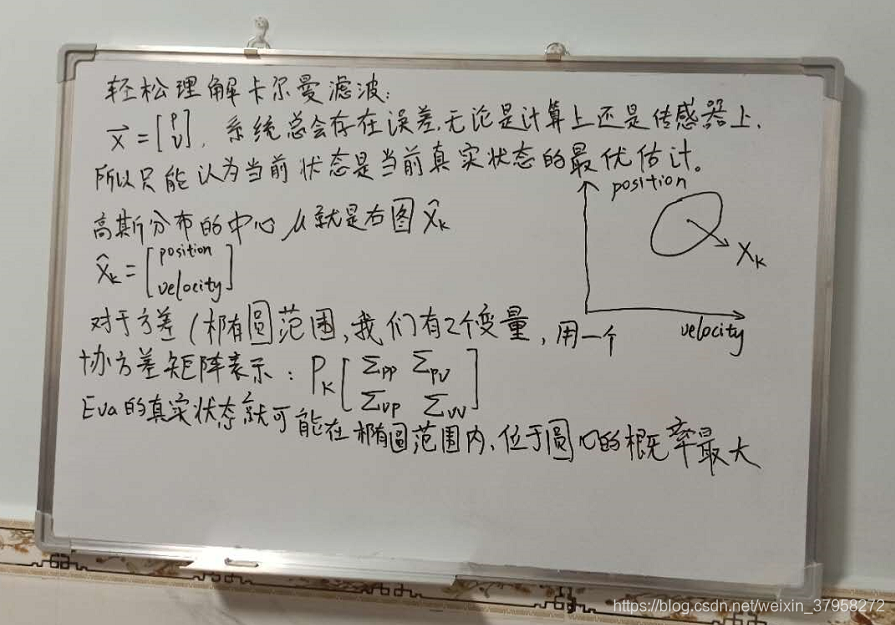 轻松理解卡尔曼滤波:
x = [p v], 系统总会存在误差,无论是计算上还是传感器上.
所以只能认为当前状态是当前真实状态的最优估计。
position
高斯分布的中心 μ 就是右图 x̂k
xk
x̂k = [position velocity]
velocity
对于方差(椭圆范围,我们有2个变量,用一个
协方差矩阵表示: Pk [Σpp Σpv
Σvp Σvv]
Eva的真实状态就可能在椭圆范围内,位于圆心的概率最大
https://blog.csdn.net/weixin_37958272